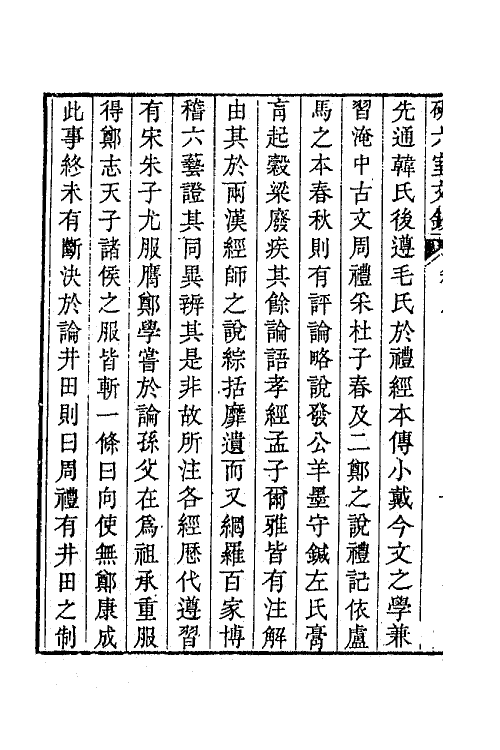 研六室文鈔
先通韓氏後遵毛氏於禮經本傳小戴今文之學兼
習淹中古文周禮采杜子春及二鄭之說禮記依盧
馬之本春秋則有評論略說發公羊墨守鍼左氏膏
肓起穀梁廢疾其餘論語孝經孟子爾雅皆有注解
由其於兩漢經師之說綜括靡遺而又網羅百家博
稽六藝證其同異辨其是非故所注各經歷代遵習
有宋朱子尤服膺鄭學嘗於論孫父在爲祖承重服
得鄭志天子諸侯之服皆斬一條曰向使無鄭康成
此事終未有斷決於論井田則曰周禮有井田之制